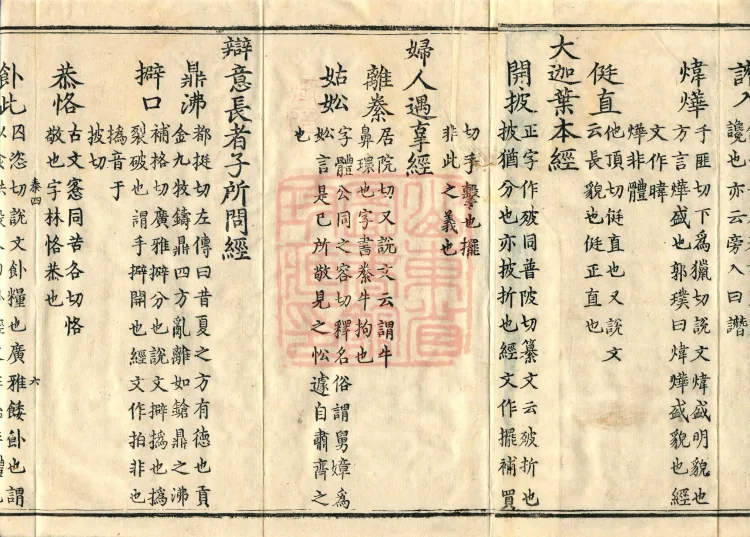 讒也亦云旁入曰譖
煒燁
于匪切下爲獵切說文煒盛明貌也
方言燁盛也郭璞曰煒燁盛貌也經
文作暐
燁非體
侹直
他頂切侹直也又說文
云長貌也侹正直也
大迦葉本經
開披
正字作㱟同普陂切纂文云㱟折也
披猶分也亦披折也經文作擺補買
切手擊也擺
非此之義也
婦人遇辜經
離桊
居院切又說文云謂牛
鼻環也字書桊牛拘也
姑妐
字體公同之容切釋名俗謂舅嫜爲
妐言是己所敬見之忪遽自肅齊之
也
辯意長者子所問經
鼎沸
都挺切左傳曰昔夏之方有德也貢
金九牧鑄鼎四方亂離如鎗鼎之沸
擗口
補格切廣雅擗分也說文擗撝也撝
裂破也謂手擗開也經文作拍非也
撝音于
披切
恭恪
古文愙同苦各切恪
敬也字林恪恭也
六
飤此
囚恣切說文飤糧也廣雅餧飤也謂